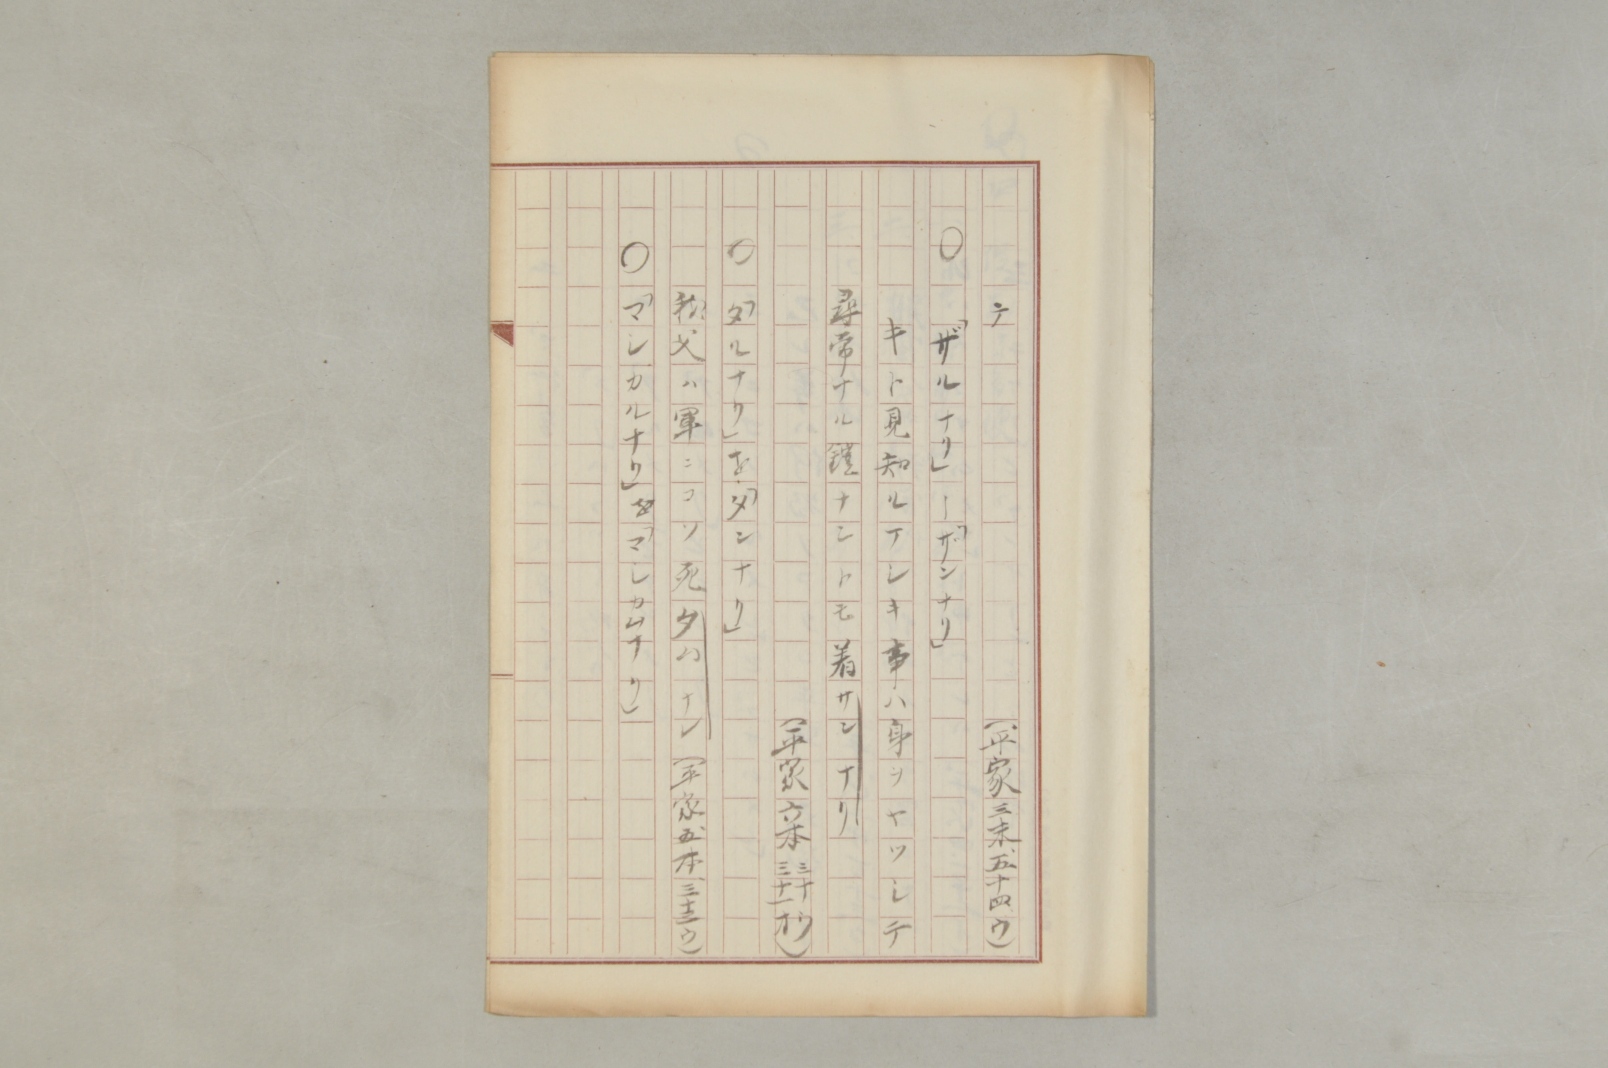 テ
(平家三末、五十四、ウ)
○「ザルナリ」―「ザンナリ」
キト見知ルマシキ事ハ身ヲヤツシテ
尋常ナル鎧ナントモ着サンナリ
(平家六本三十ウ三十一オ)
○「タルナリ」を「タンナリ」
秩父ハ軍ニコソ死タハナレ(平家五本、三十三ウ)
○「マシカルナリ」を「マシカムナリ」